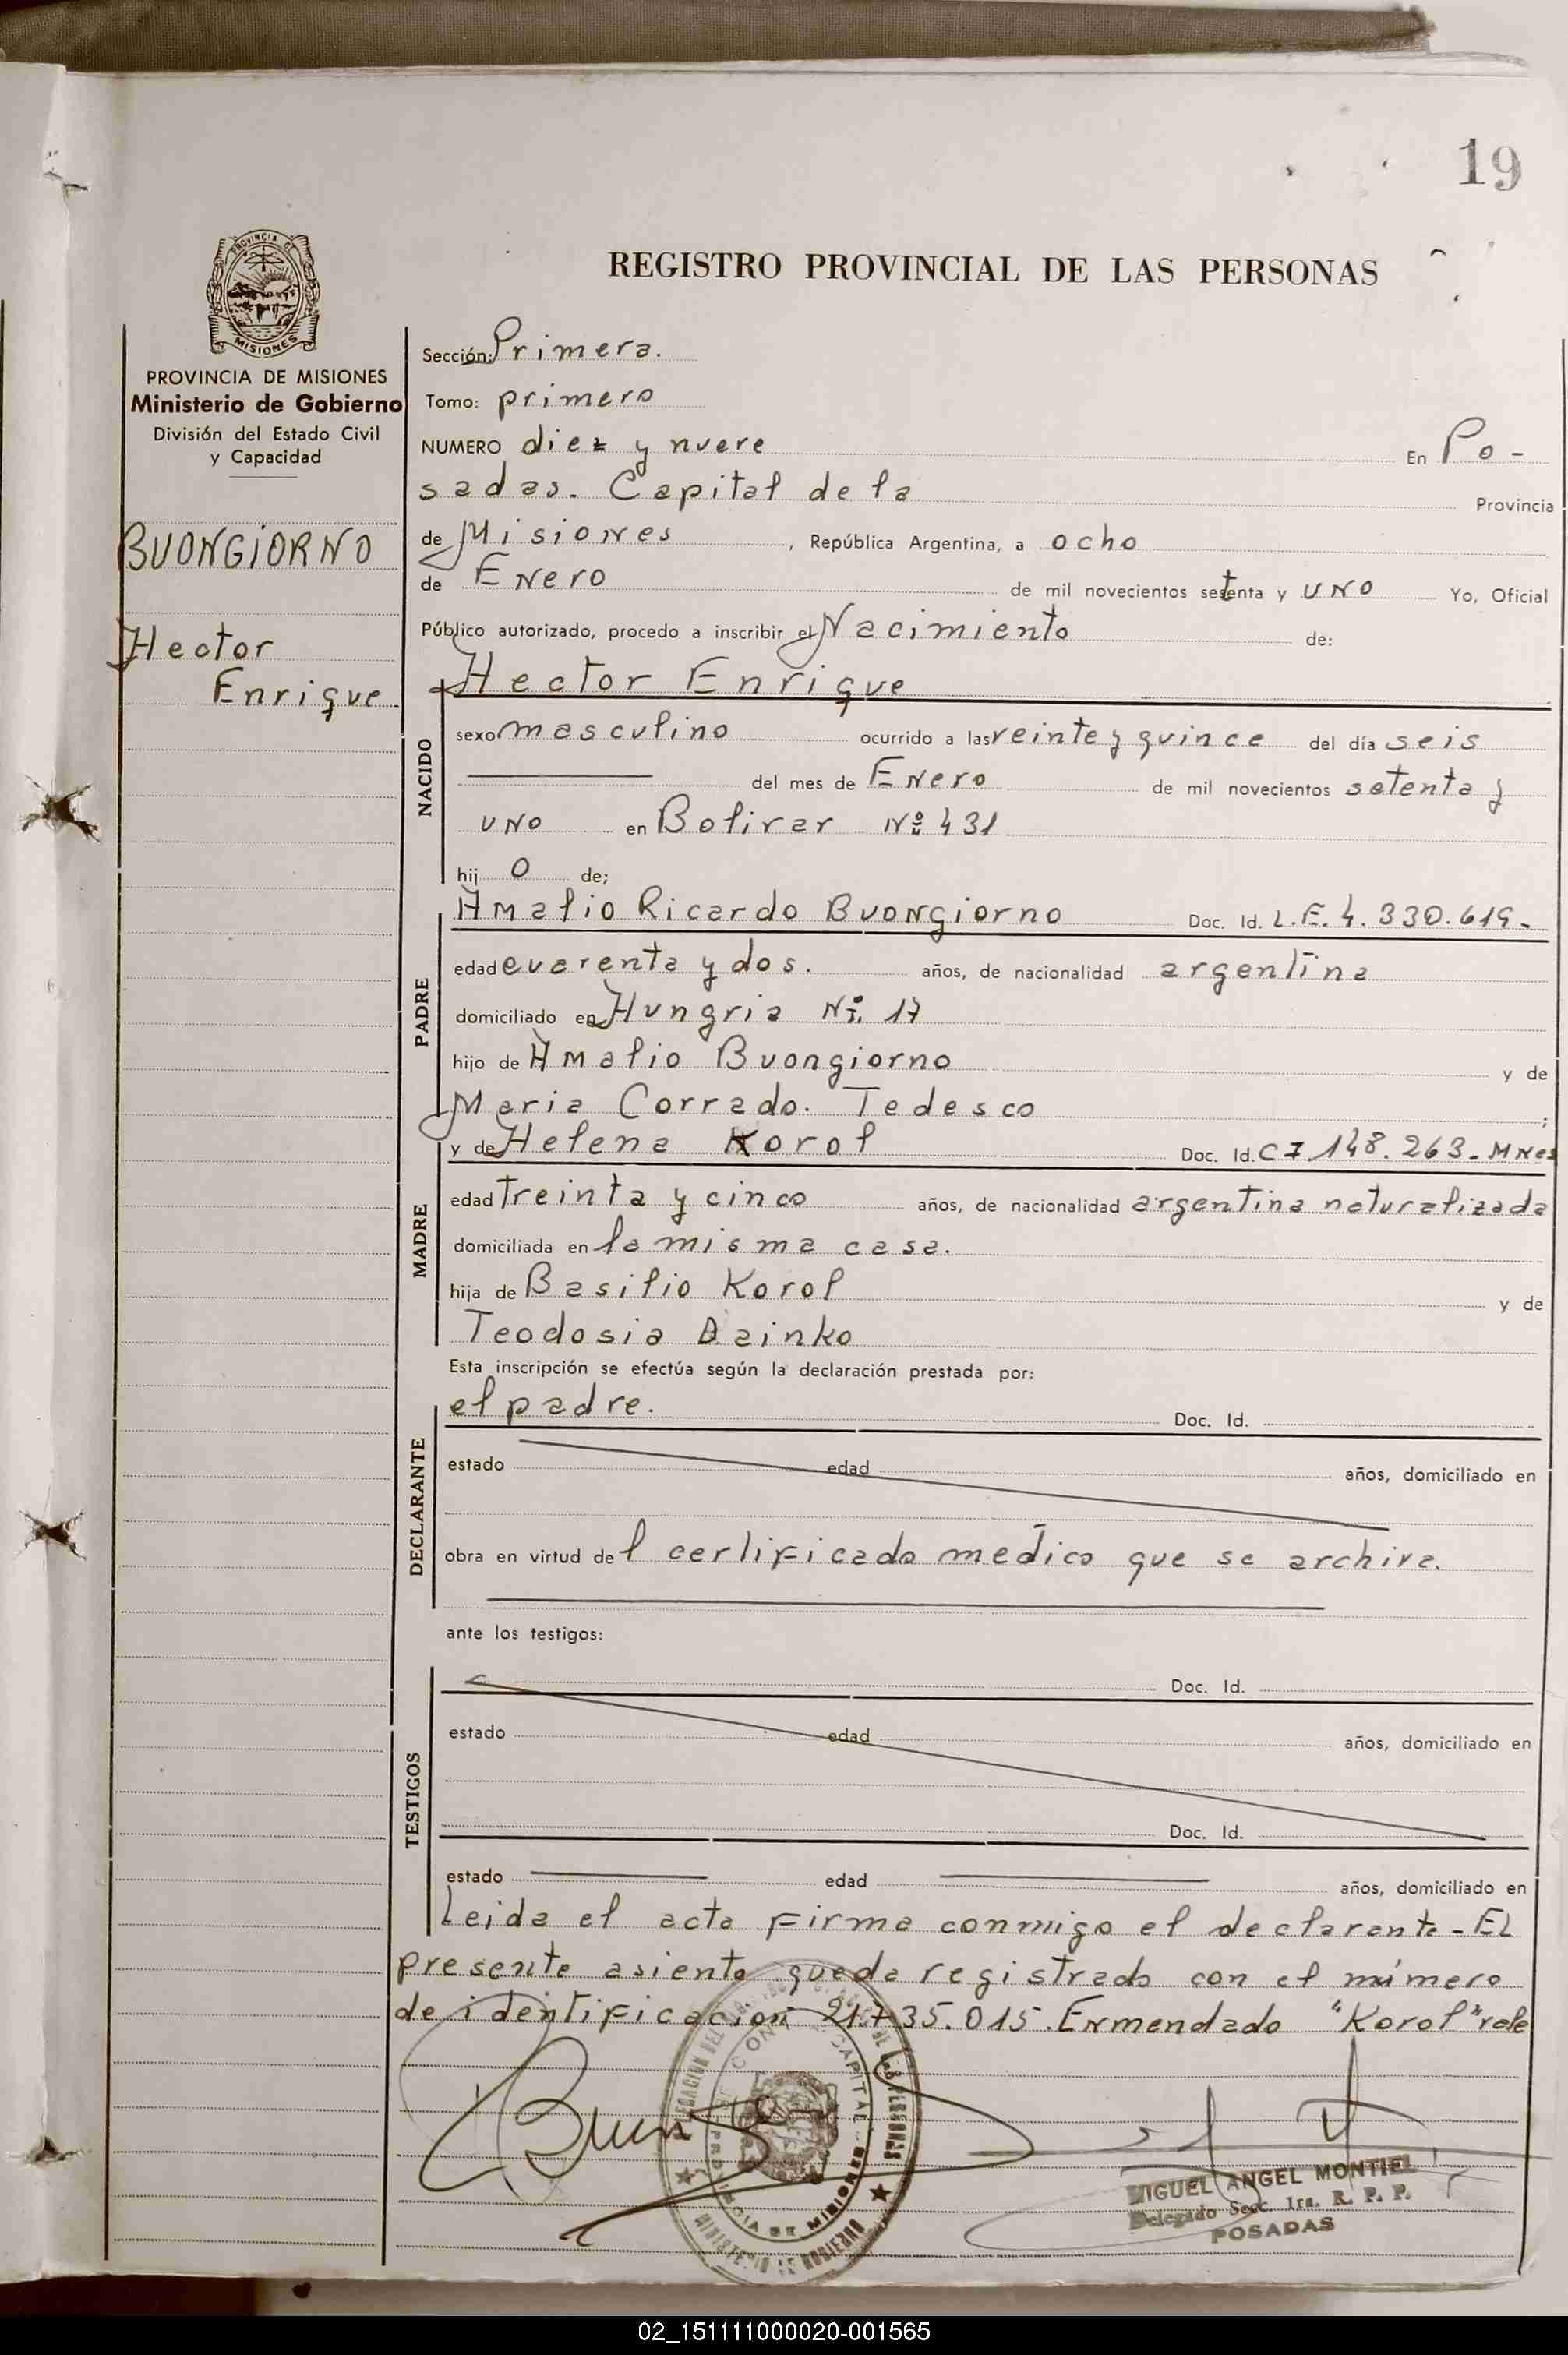 19
REGISTRO PROVINCIAL DE LAS PERSONAS
PROVINCIA DE
MISIONES
PROVINCIA DE MISIONES
Ministerio de Gobierno
División del Estado Civil
y Capacidad
BUONGIORNO
Hector
Enrique
Sección: Primera.
Tomo: primero
NUMERO diez y nueve En Po-
sadas. Capital de la Provincia
de Misiones, República Argentina, a ocho
de Enero de mil novecientos setenta y uno Yo, Oficial
Público autorizado, procedo a inscribir el Nacimiento de:
Hector Enrique
NACIDO
sexo masculino ocurrido a las veinte y quince del día seis
del mes de Enero de mil novecientos setenta y
uno en Bolivar Nº 431
hij o de;
PADRE
Amalio Ricardo Buongiorno Doc. Id. L.E. 4.330.619.-
edad cuarenta y dos. años, de nacionalidad argentina
domiciliado en Hungria Nº. 17
hijo de Amalio Buongiorno y de
Maria Corrado. Tedesco ;
MADRE
y de Helena Korol Doc. Id. CI 148.263.- Mnes
edad treinta y cinco años, de nacionalidad argentina naturalizada
domiciliada en la misma casa.
hija de Basilio Korol y de
Teodosia Dainko
Esta inscripción se efectúa según la declaración prestada por:
DECLARANTE
el padre. Doc. Id.
estado edad años, domiciliado en
obra en virtud del certificado medico que se archiva.
ante los testigos:
TESTIGOS
Doc. Id.
estado edad años, domiciliado en
Doc. Id.
estado edad años, domiciliado en
Leida el acta firma conmigo el declarante - El
presente asiento queda registrado con el número
de identificacion 21.735.015. Enmendado "Korol" vale
CAPITAL
PROVINCIA DE MISIONES
MINISTERIO DE GOBIERNO
MIGUEL ANGEL MONTIEL
Delegado Secc. 1ra. R. P. P.
POSADAS
02_151111000020-001565